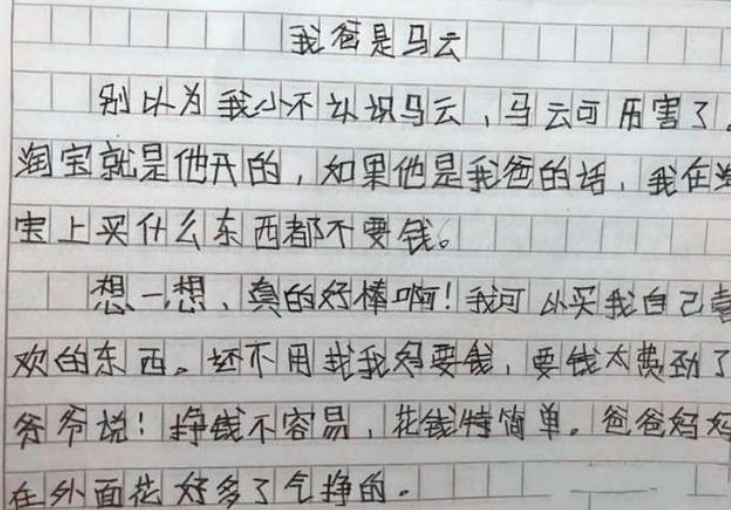 我爸是马云
别以为我小不认识马云,马云可历害了。
淘宝就是他开的,如果他是我爸的话,我在淘
宝上买什么东西都不要钱。
想一想、真的好棒啊!我可以买我自己喜
欢的东西。还不用找我妈要钱,要钱太费劲了
爷爷说!挣钱不容易,花钱特简单。爸爸妈妈
在外面花好多了气挣的。